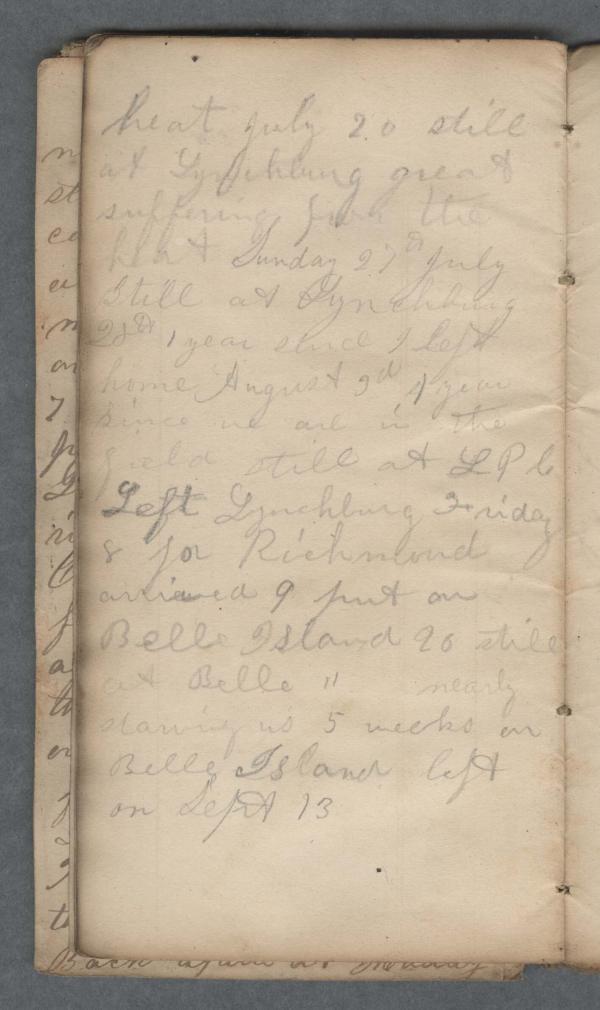 heat July 20 still
at Lynchburg great
suffering from the
heat Sunday 27th July
Still at Lynchburg
28th 1 year since I left
home August 3d 1 year
since we are in the
field still at L P b
Left Lynchburg Friday
8 for Richmond
arrieved 9 put on
Belle Island 20 still
at Belle " nearly
starving us 5 weeks on
Belle Island left
on Sept 13
Back again at Monday